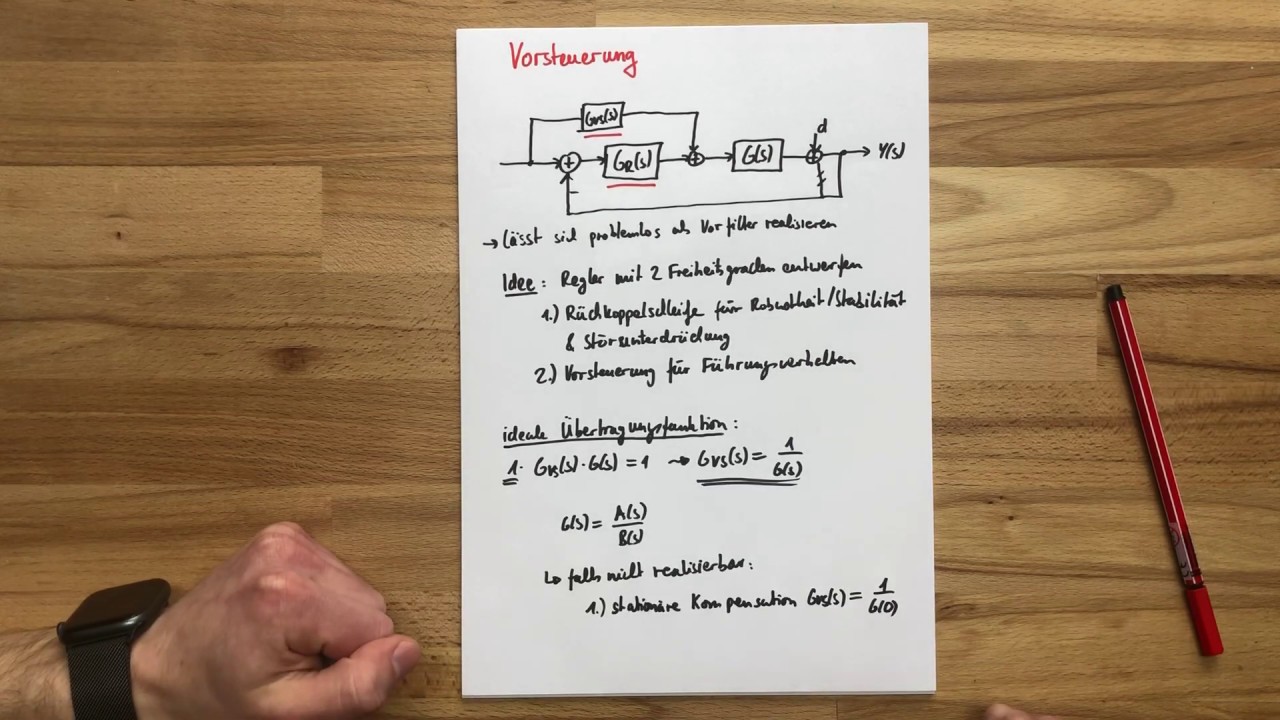 Vorsteuerung
Gvs(s)
d
GR(s)
G(s)
Y(s)
→ Lässt sich problemlos als Vorfilter realisieren
Idee: Regler mit 2 Freiheitsgraden entwerfen
1.) Rückkoppelschleife für Robustheit/Stabilität
& Störunterdrückung
2.) Vorsteuerung für Führungsverhalten
ideale Übertragungsfunktion:
1. Gvs(s)·G(s) = 1 ⇝ Gvs(s) = 1/G(s)
G(s) = A(s)/B(s)
↳ falls nicht realisierbar:
1.) stationäre Kompensation Gvs(s) = 1/G(0)